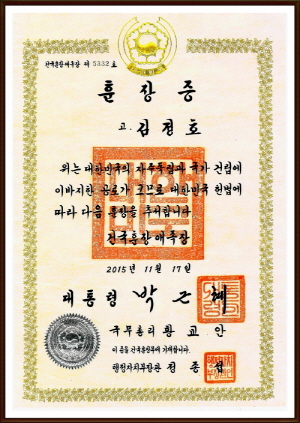 건국훈장애족장 제 5332 호
훈장증
고. 김정호
위는 대한민국의 자주독립과 국가 건립에
이바지한 공로가 크므로 대한민국 헌법에
따라 다음 훈장을 추서합니다
건국훈장 애족장
2015년 11월 17일
대통령 박근혜
국무총리 황교안
이 증을 건국훈장부에 기재합니다.
행정자치부장관 정종섭